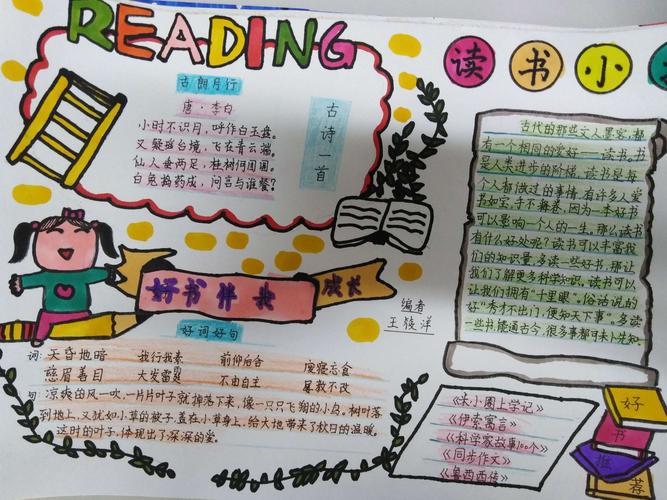 READING
读书小
古朗月行
唐·李白
小时不识月，呼作白玉盘。
又疑瑶台境，飞在青云端。
仙人垂两足，桂树何团团。
白兔捣药成，问言与谁餐？
古诗一首
好书伴我
成长
编者
好词好句
词：天昏地暗 我行我素 前仰后合 废寝忘食
慈眉善目 大发雷霆 不由自主 屡教不改
句：凉爽的风一吹，一片片叶子就掉落下来，像一只只飞翔的小鸟。树叶落
到地上，又犹如小草的被子，盖在小草身上，给大地带来了秋日的温暖。
这时的叶子，体现出了深深的爱。
古代的那些文人墨客，都
有一个相同的爱好——读书。书
是人类进步的阶梯，读书是每
个人都做过的事情，有许多人爱
书如宝，手不释卷，因为一本好书
可以影响一个人的一生。那么读书
有什么好处呢？读书可以丰富我
们的知识量，多读一些好书，那让
我们了解更多科学知识。读书可以
让我们拥有“千里眼”。俗话说的
好“秀才不出门，便知天下事”。多读
一些书，能通古今，很多事都可未卜先知
《米小圈上学记》
《伊索寓言》
《科学家故事100个》
《同步作文》
《鲁西西传》
好
书
推
荐